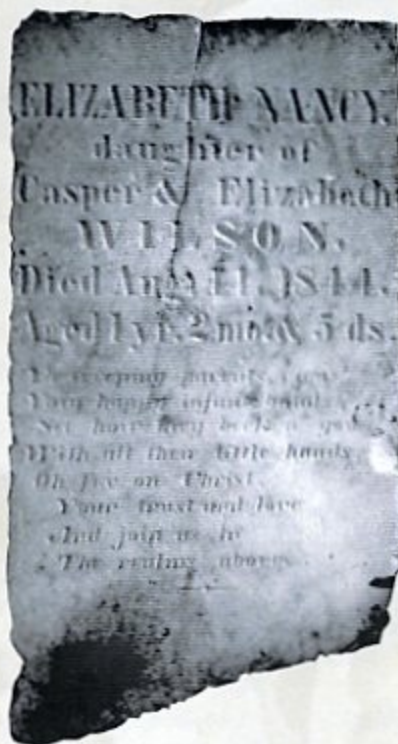 ELIZABETH NANCY,
daughter of
Casper & Elizabeth
WILSON.
Died Aug. 11, 1844.
Aged 1 yr. 2 mo. & 5 ds.
Ye weeping parents,
Your happy infant
See how they
With all their little hands
Oh fix on Christ
Your trust and love
And join us in
The realms above.